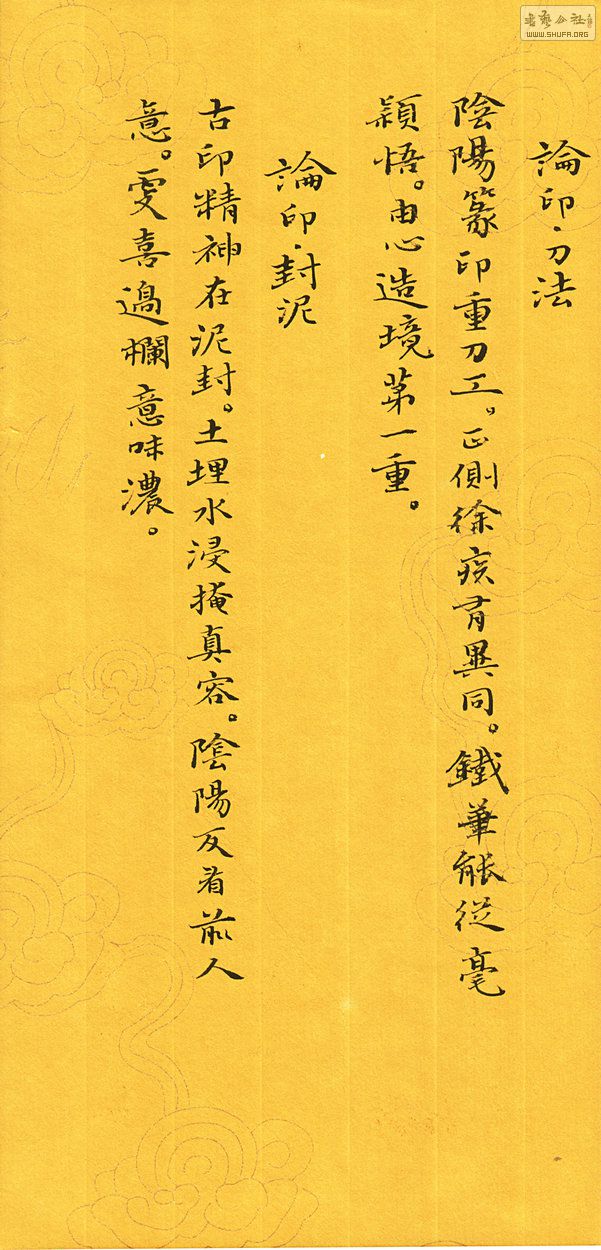 論印·刀法
陰陽篆印重刀工。正側徐疾有異同。鐵筆能從毫
穎悟。由心造境第一重。
論印·封泥
古印精神在泥封。土埋水浸掩真容。陰陽反看前人
意。更喜邊欄意味濃。
書藝公社
WWW.SHUFA.ORG